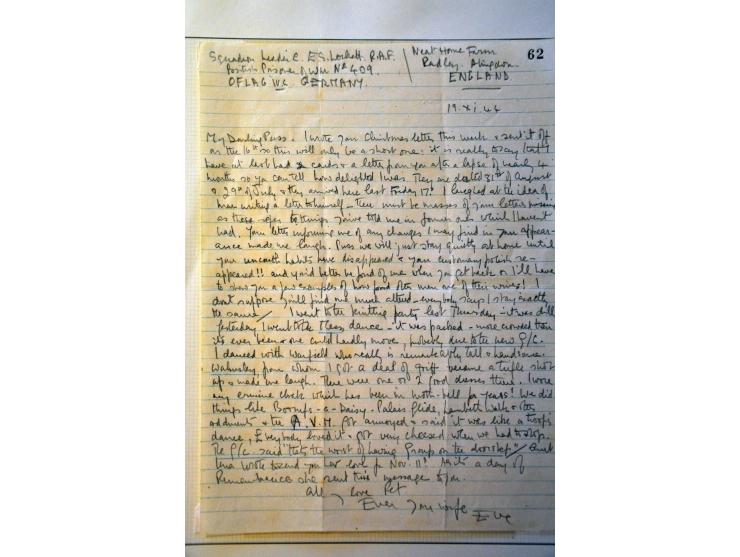 Squadron Leader C. E.S. Lockett. R.A.F.
British Prisoner of War No 409.
OFLAG IVC. GERMANY.
Neat Home Farm
Radley. Abingdon.
ENGLAND
62
19. xi. 44
My Darling Puss. I wrote your Christmas letter this week & sent it off
on the 16th so this will only be a short one. it is really to say that I
have at last had 2 cards & a letter from you after a lapse of nearly 4
months so you can tell how delighted I was. They are dated 31st of August
& 29th of July & they arrived here last Friday 17th! I laughed at the idea of
man writing a letter to himself – there must be masses of your letters missing
as these refer to things you've told me in former ones which I haven't
had. Your letter informing me of any changes I may find in your appear-
ance made me laugh. Puss we will just stay quietly at home until
your uncouth habits have disappeared & your customary polish re-
appeared!! and you'd better be fond of me when you get back or I'll have
to show you a few examples of how fond other men are of their wives! I
don't suppose you'll find me much altered – everybody says I stay exactly
the same/ I went to the knitting party last Thursday – it was dull
Yesterday I went to the Mess dance – it was packed – more crowded than
it's ever been & one could hardly move, probably due to the new G/C.
I danced with who really is remarkably tall & handsome.
Walmsley from whom I got a deal of griff became a trifle shot
up & made me laugh. There were one or 2 good dresses there. I wore
my ermine cloak which has been in moth-ball for years! We did
things like Boomps-a-Daisy. Palais Glide, Lambeth Walk & other
oddments & the A.V.M. got annoyed & said it was like a troops
dance, Everybody loved it & got very cheesed when we had to stop.
The G/C. said "that's the worst of having Group on the doorstep"/ Aunt
wrote to send you her love for Nov. 11th. As its a day of
Remembrance she sent this message to you.
All my love Pet
Ever your wife Eve